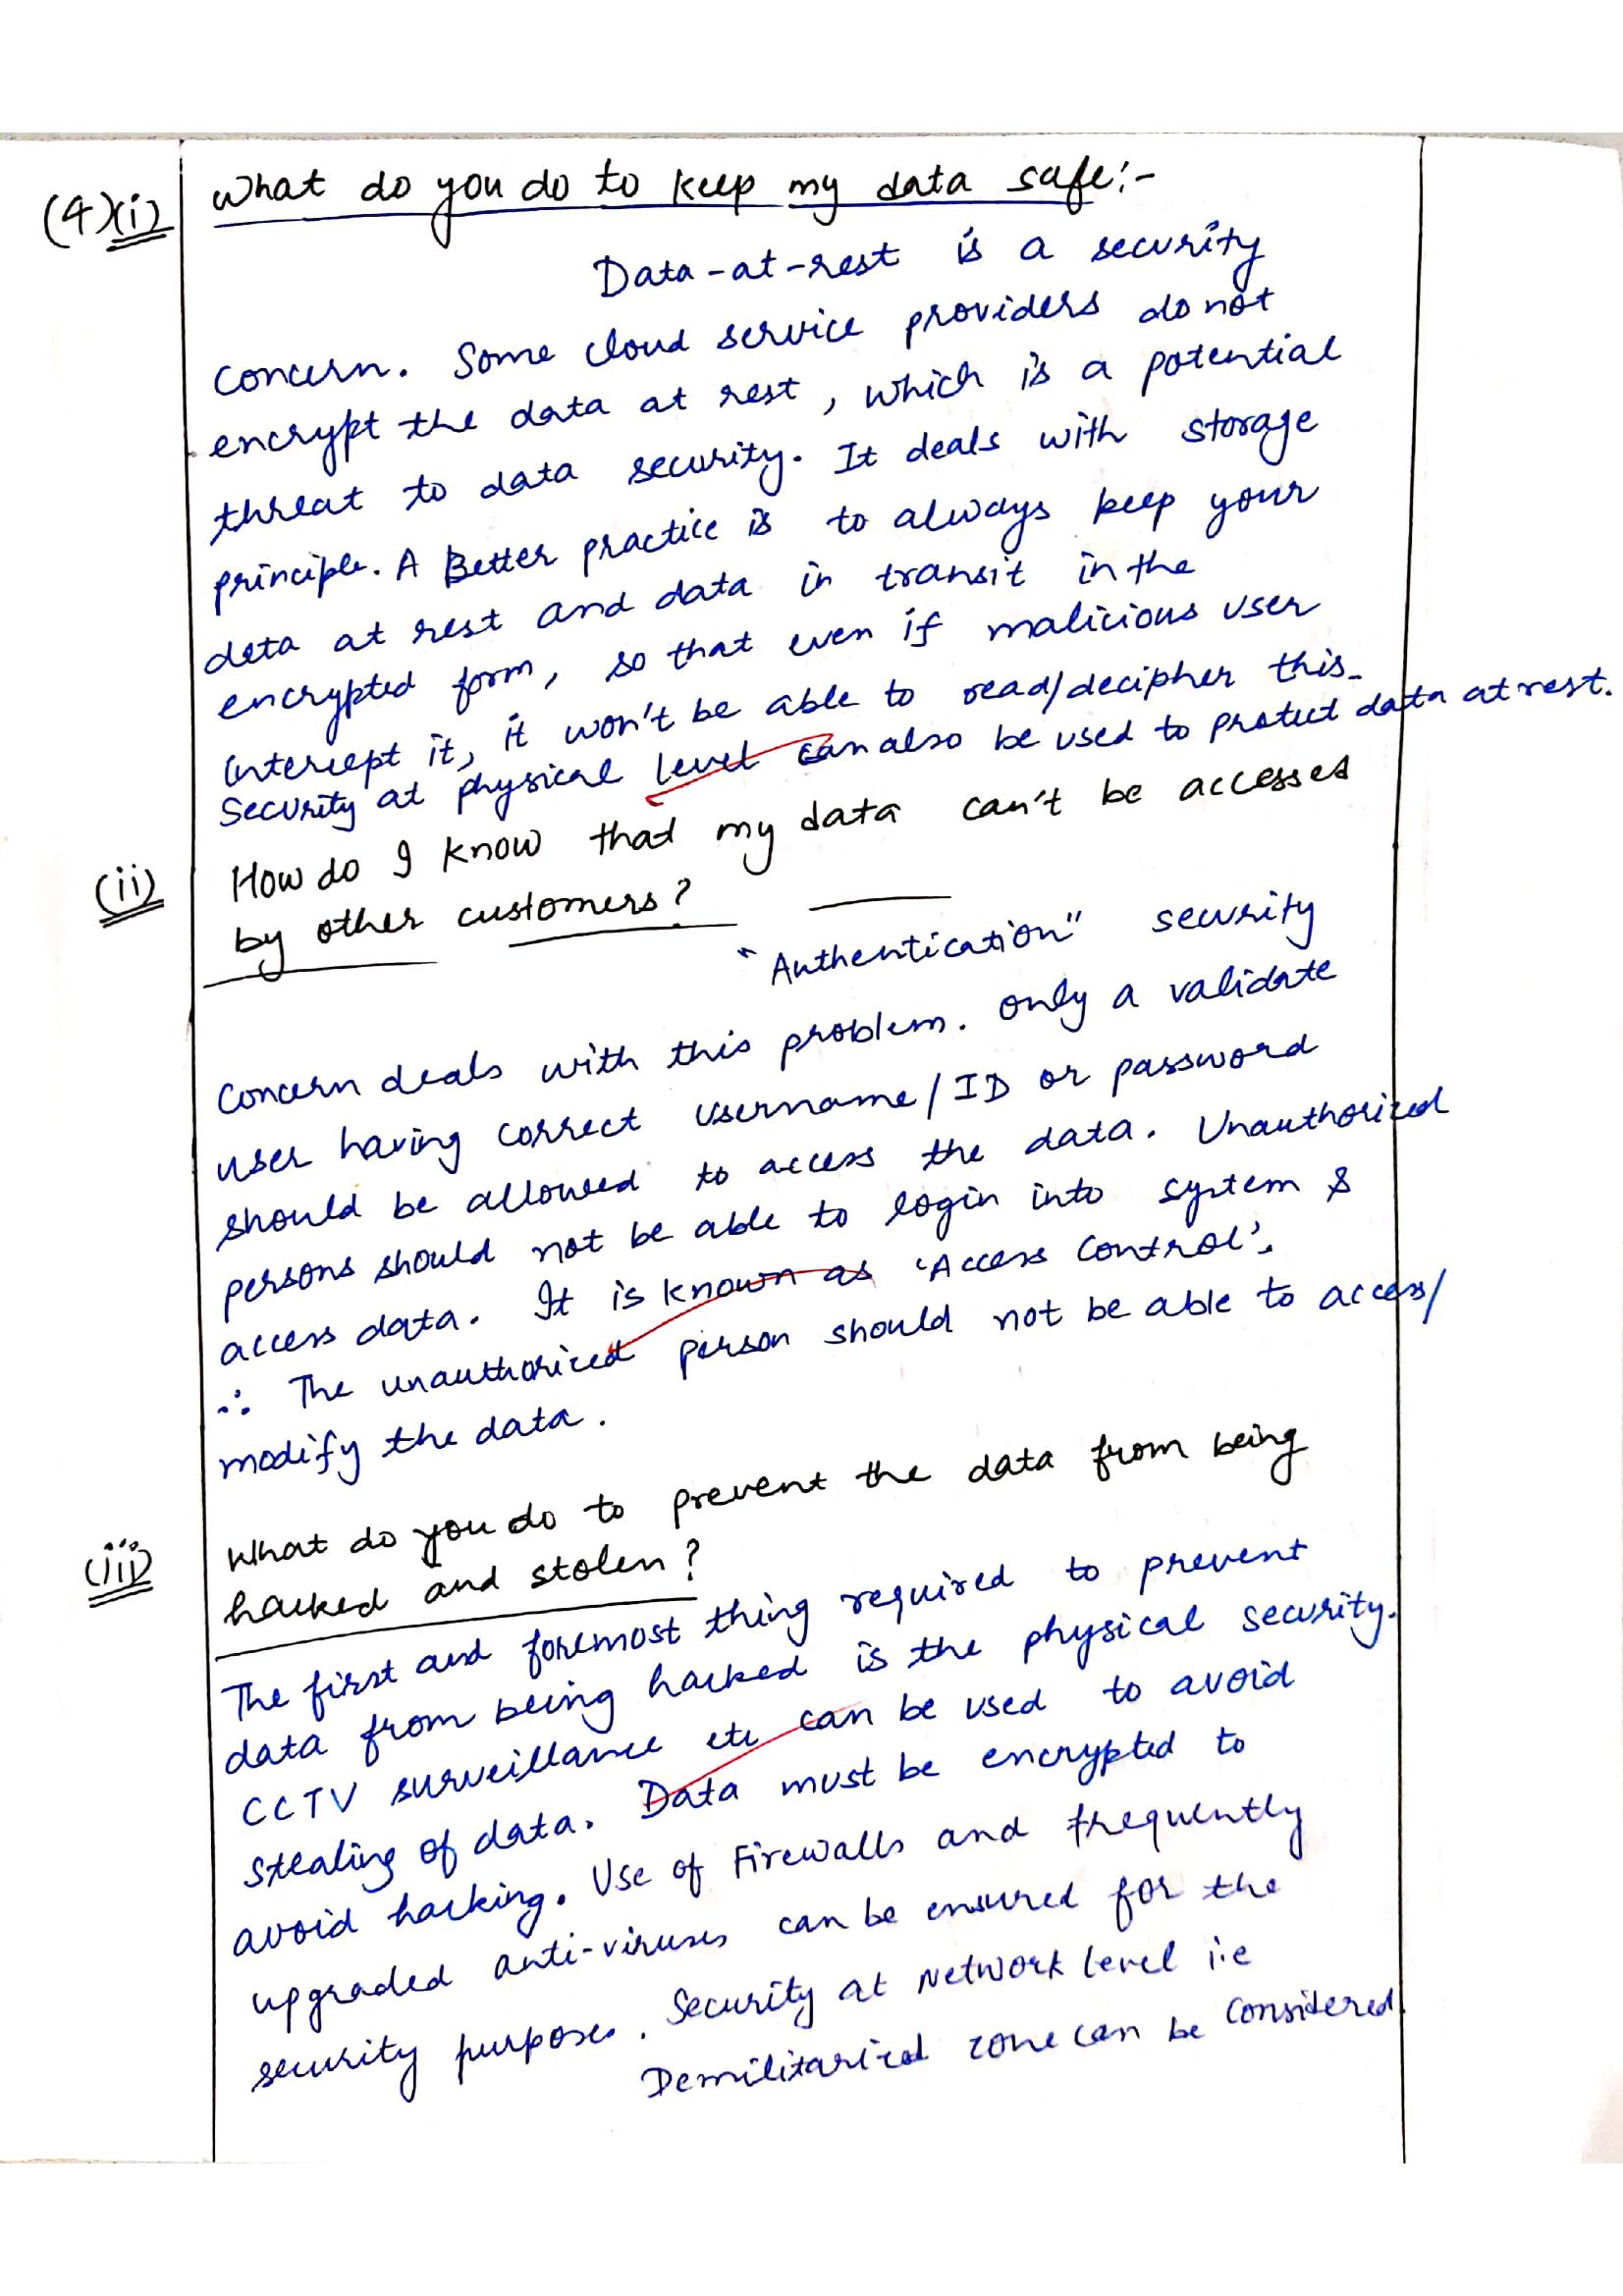 (4)(i) What do you do to keep my data safe:-
Data-at-rest is a security
concern. Some cloud service providers do not
encrypt the data at rest, which is a potential
threat to data security. It deals with storage
principle. A Better practice is to always keep your
data at rest and data in transit in the
encrypted form, so that even if malicious user
intercept it, it won't be able to read/decipher this.
Security at physical level can also be used to protect data at rest.
(ii) How do I know that my data can't be accesses
by other customers?
"Authentication" security
concern deals with this problem. Only a validate
user having correct username/ID or password
should be allowed to access the data. Unauthorized
persons should not be able to login into system &
access data. It is known as 'Access Control'.
∴ The unauthorized person should not be able to access/
modify the data.
(iii) What do you do to prevent the data from being
hacked and stolen?
The first and foremost thing required to prevent
data from being hacked is the physical security.
CCTV surveillance etc can be used to avoid
stealing of data. Data must be encrypted to
avoid hacking. Use of Firewalls and frequently
upgraded anti-viruses can be ensured for the
security purposes. Security at Network level i.e
Demilitarized zone can be considered.